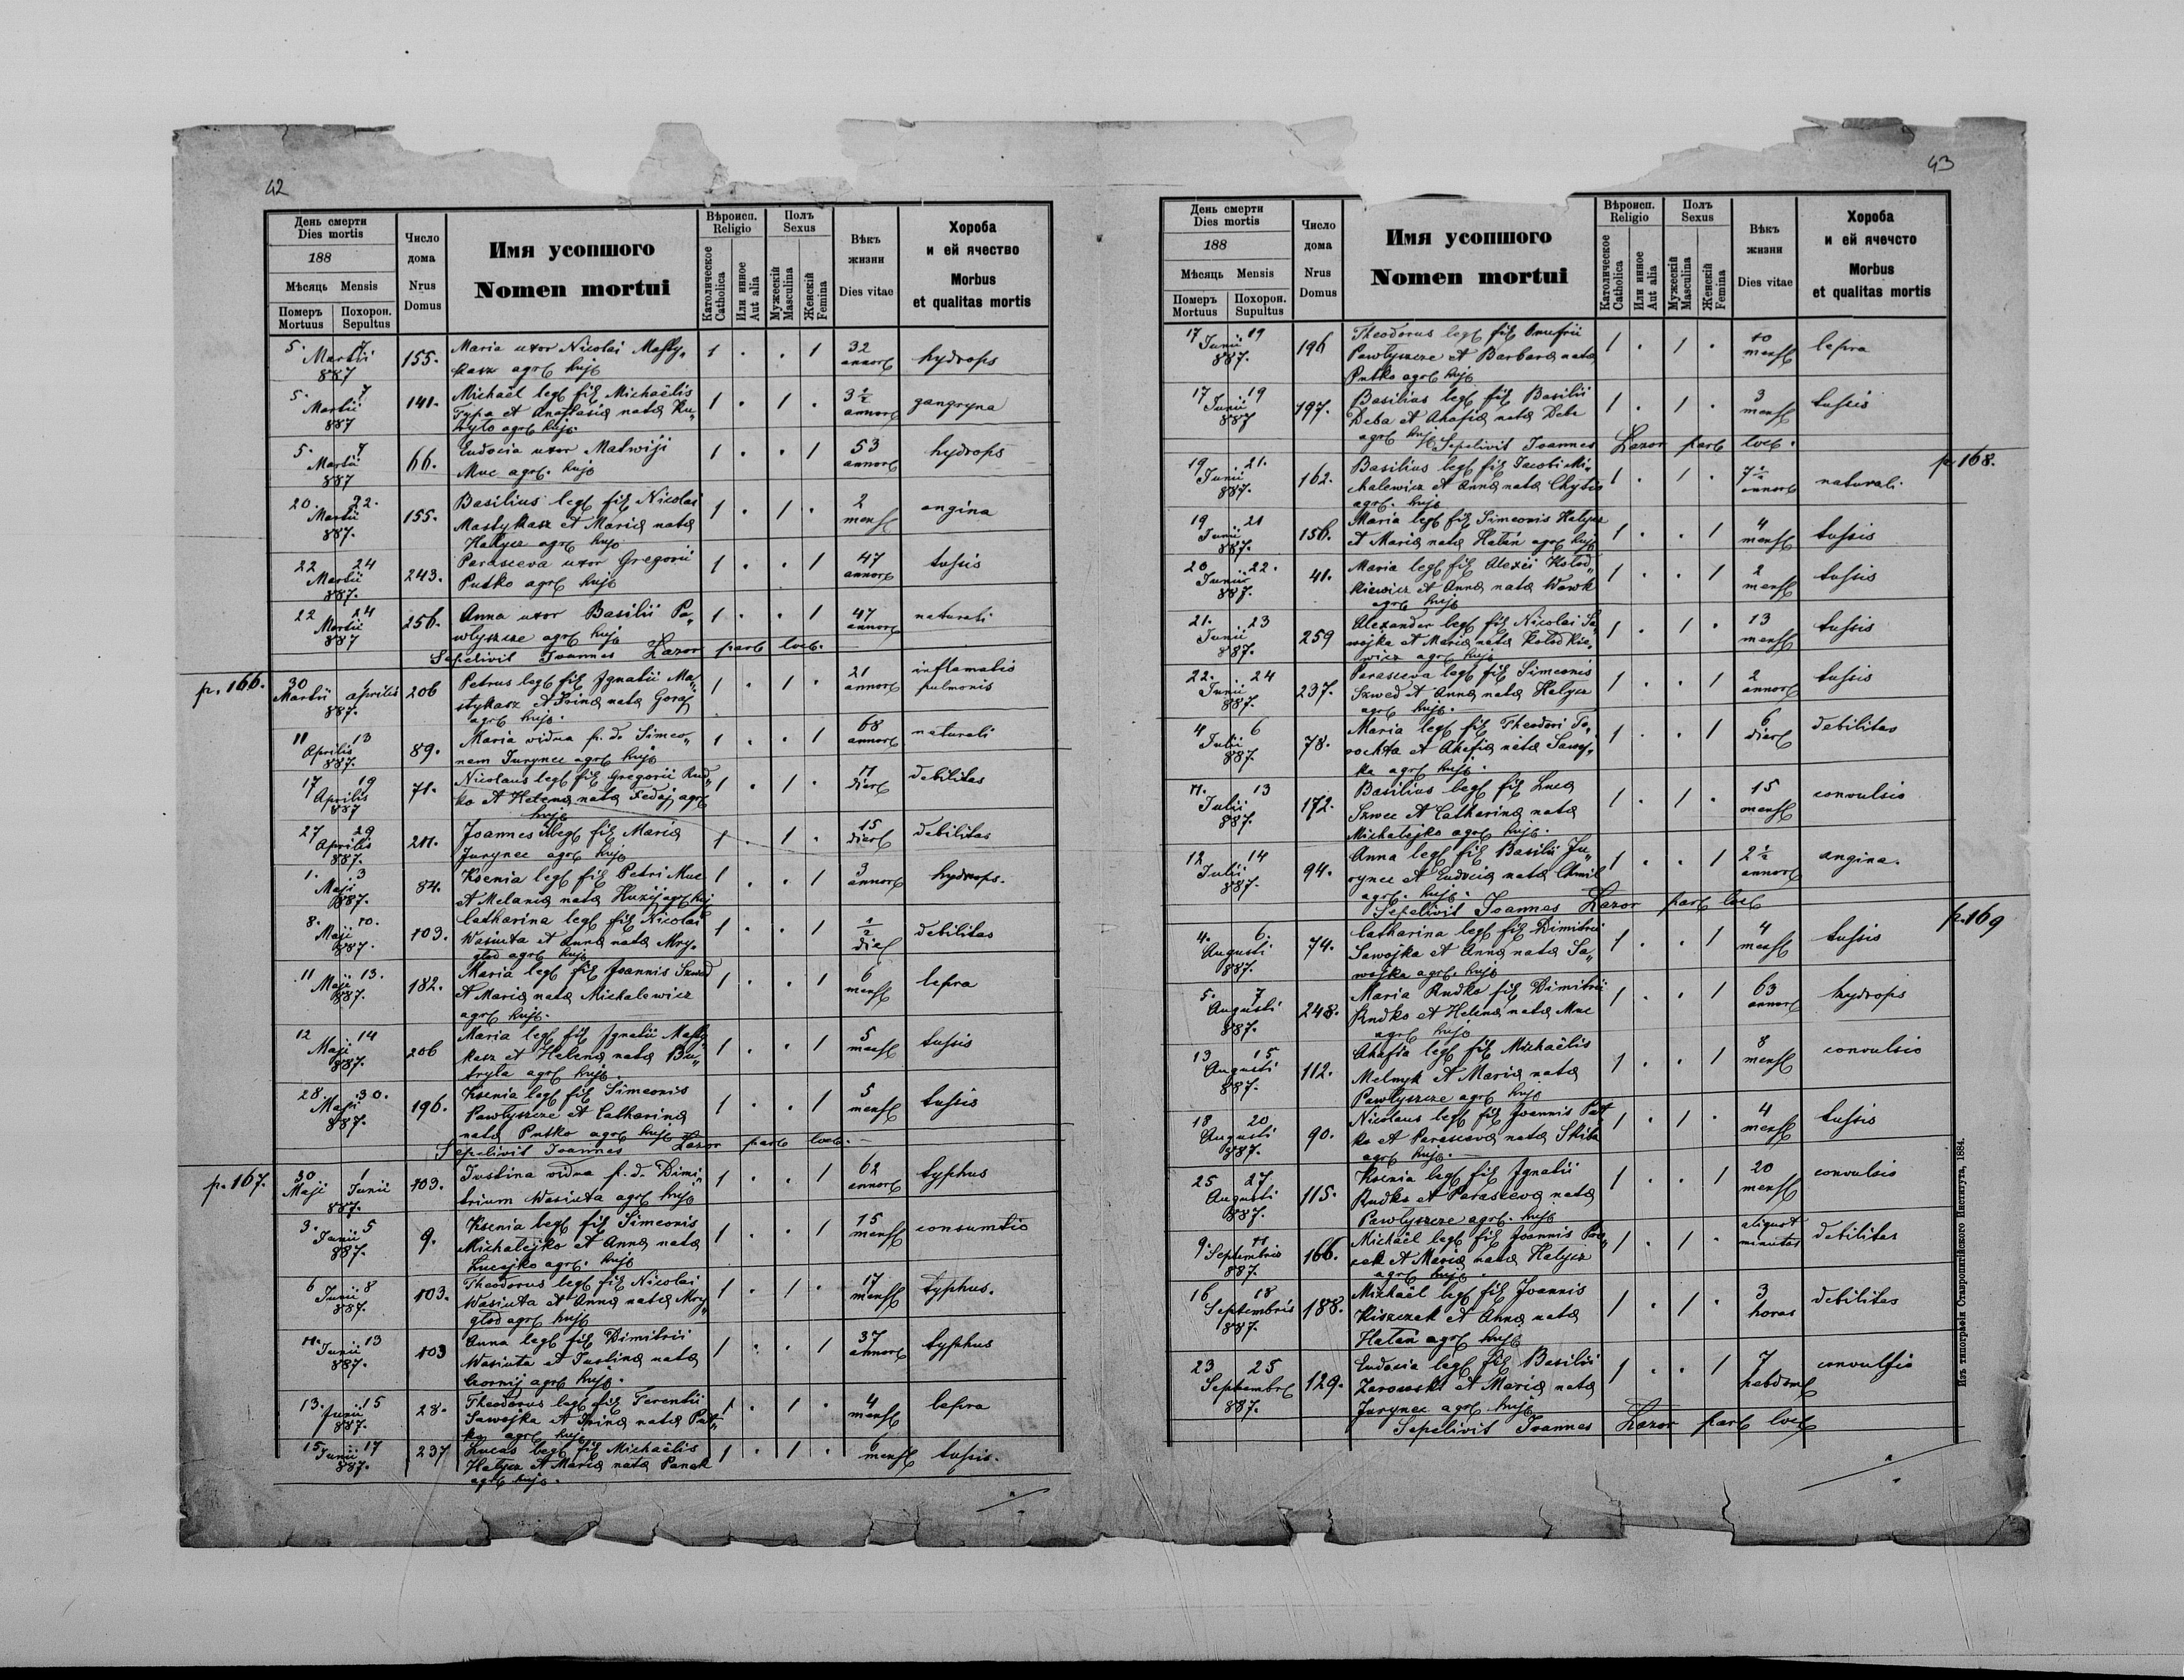 42
День смерти
Dies mortis
188
Мѣсяць Mensis
Померъ Mortuus
Похорон. Sepultus
Число дома
Nrus Domus
Имя усопшого
Nomen mortui
Вѣроисп. Religio
Католическое Catholica
Или инное Aut alia
Полъ Sexus
Мужескій Masculina
Женскій Femina
Вѣкъ жизни
Dies vitae
Хороба и ей ячество
Morbus et qualitas mortis
5. 7 Martii 887 155. Maria uxor Nicolai Masty„ 1 . . 1 32 annor hydrops
kasz agr huj
5. 7 Martii 887 141. Michaël leg fil Michaëlis 1 . 1 . 3 1/2 annor gangryna
Typa et Anastasia nata Ku„
tryto agr huj.
5. 7 Martii 887 66. Eudocia uxor Matwiji 1 . . 1 53 annor hydrops
Muc agr. huj
20. 22. Martii 887. 155. Basilius leg fil Nicolai 1 . 1 . 2 mens angina
Mastykasz et Maria nata
Halycz agr huj
22 24 Martii 887. 243. Parasceva uxor Gregorii 1 . . 1 47 annor tussis
Putko agr huj
22 24 Martii 887 256. Anna uxor Basilii Pa„ 1 . . 1 47 annor naturali
wlyszcze agr huj
Sepelivit Joannes Lazor par loc.
p. 166. 30 Martii 1 Aprilis 887. 206 Petrus leg fil Ignatii Ma„ 1 . 1 . 21 annor inflamatio pulmonis
stykasz et Irina nata Goraj
agr huj.
11 13 Aprilis 887. 89. Maria vidua p. d. Simeo„ 1 . . 1 68 annor naturali
nem Jurynec agr huj
17 19 Aprilis 887 71. Nicolaus leg fil Gregorii Rud„ 1 . 1 . 11 dier debilitas
ko et Helena nata Fedaj agr
huj
27 29 Aprilis 887. 211. Joannes illeg fil Maria 1 . 1 . 15 dier debilitas
Jurynec agr huj
1. 3 Maji 887. 84. Ksenia leg fil Petri Muc 1 . . 1 3 annor hydrops.
et Melania nata Huzij agr huj
8. 10. Maji 887. 103. Catharina leg fil Nicolai 1 . . 1 1/2 die debilitas
Wasiuta et Anna nata Mry„
glod agr huj
11 13. Maji 887. 182. Maria leg fil Joannis Szwed 1 . . 1 6 mens lepra
et Maria nata Michalewicz
agr huj.
12 14 Maji 887. 206 Maria leg fil Ignatii Masty„ 1 . . 1 5 mens tussis
kasz et Helena nata Bu„
tryla agr huj.
28. 30. Maji 887. 196. Ksenia leg fil Simeonis 1 . . 1 5 mens tussis
Pawlyszcze et Catharina
nata Putko agr huj
Sepelivit Joannes Lazor par loc.
p. 167. 30 Maji 1 Junii 887. 103. Justina vidua p. d. Dimi„ 1 . . 1 62 annor typhus
trium Wasiuta agr huj
3. 5 Junii 887. 9. Ksenia leg fil Simeonis 1 . . 1 15 mens consumtio
Michalejko et Anna nata
Lucejko agr. huj
6 8 Junii 887. 103. Theodorus leg fil Nicolai 1 . 1 . 17 mens typhus.
Wasiuta et Anna nata Mry„
glod agr huj
11. 13 Junii 887. 103 Anna leg fil Dimitrii 1 . . 1 37 annor typhus
Wasiuta et Justina nata
Czornij agr huj.
13. 15 Junii 887. 28. Theodorus leg fil Terentii 1 . 1 . 4 mens lepra
Sawojka et Irina nata Put„
ko agr huj
15 17 Junii 887. 237 Lucas leg fil Michaëlis 1 . 1 . 6 mens tussis.
Halycz et Maria nata Panak
agr huj.
43
День смерти
Dies mortis
188
Мѣсяць Mensis
Померъ Mortuus
Похорон. Supultus
Число дома
Nrus Domus
Имя усопшого
Nomen mortui
Вѣроисп. Religio
Католическое Catholica
Или инное Aut alia
Полъ Sexus
Мужескій Masculina
Женскій Femina
Вѣкъ жизни
Dies vitae
Хороба и ей ячечсто
Morbus et qualitas mortis
17 19 Junii 887. 196 Theodorus leg fil Onufrii 1 . 1 . 10 mens lepra
Pawlyszcze et Barbara nata
Putko agr huj
17 19 Junii 887 197. Basilius leg fil Basilii 1 . 1 . 3 mens tussis
Deba et Ahafia nata Deba
agr huj Sepelivit Joannes Lazor par loc.
p. 168.
19 21. Junii 887. 162. Basilius leg fil Jacobi Mi„ 1 . 1 . 7 1/2 annor naturali.
chalewicz et Anna nata Chytis
agr. huj
19 21 Junii 887. 156. Maria leg fil Simeonis Halycz 1 . . 1 4 mens tussis
et Maria nata Hatan agr huj
20 22. Junii 887. 41. Maria leg fil Alexii Kolod„ 1 . . 1 2 mens tussis
kiewicz et Anna nata Wowk
agr huj
21. 23 Junii 887. 259 Alexander leg fil Nicolai Sa„ 1 . 1 . 13 mens tussis
wojka et Maria nata Kolodkie„
wicz agr huj
22. 24 Junii 887. 237. Parasceva leg fil Simeonis 1 . . 1 2 annor tussis
Szwed et Anna nata Halycz
agr huj.
4 6 Julii 887. 78. Maria leg fil Theodori To„ 1 . . 1 6 dier debilitas
rochta et Ahafia nata Sawoj„
ka agr huj.
11. 13 Julii 887. 172. Basilius leg fil Luca 1 . 1 . 15 mens convulsio
Szwec et Catharina nata
Michalejko agr huj.
12 14 Julii 887. 94. Anna leg fil Basilii Ju„ 1 . . 1 2 1/2 annor angina.
rynec et Eudocia nata Chmil
agr. huj.
Sepelivit Joannes Lazor par loc
p. 169
4. 6. Augusti 887. 74. Catharina leg fil Dimitrii 1 . . 1 4 mens tussis
Sawojka et Anna nata Sa„
wojka agr. huj
5. 7 Augusti 887. 248. Maria Rudko fil Dimitrii 1 . . 1 63 annor hydrops
Rudko et Helena nata Muc
agr huj
13 15 Augusti 887. 112. Ahafia leg fil Michaëlis 1 . . 1 8 mens convulsio
Melnyk et Maria nata
Pawlyszcze agr huj
18 20 Augusti 887. 90. Nicolaus leg fil Joannis Put„ 1 . 1 . 4 mens tussis
ko et Parasceva nata Skiba
agr huj.
25 27 Augusti 887. 115. Ksenia leg fil Ignatii 1 . . 1 20 mens convulsio
Rudko et Parasceva nata
Pawlyszcze agr. huj
9. 11 Septembris 887. 166. Michaël leg fil Joannis Pro„ 1 . 1 . aliquot minutas debilitas
cak et Maria nata Halycz
agr huj.
16 18 Septembris 887. 188. Michaël leg fil Joannis 1 . 1 . 3 horas debilitas
Kiszczak et Anna nata
Hatan agr huj
23 25 Septembr 887. 129. Eudocia leg fil Basilii 1 . . 1 7 hebdom convulsio
Zarowski et Maria nata
Jurynec agr huj
Sepelivit Joannes Lazor par loc
Изъ типографіи Ставропигійского Института, 1884.